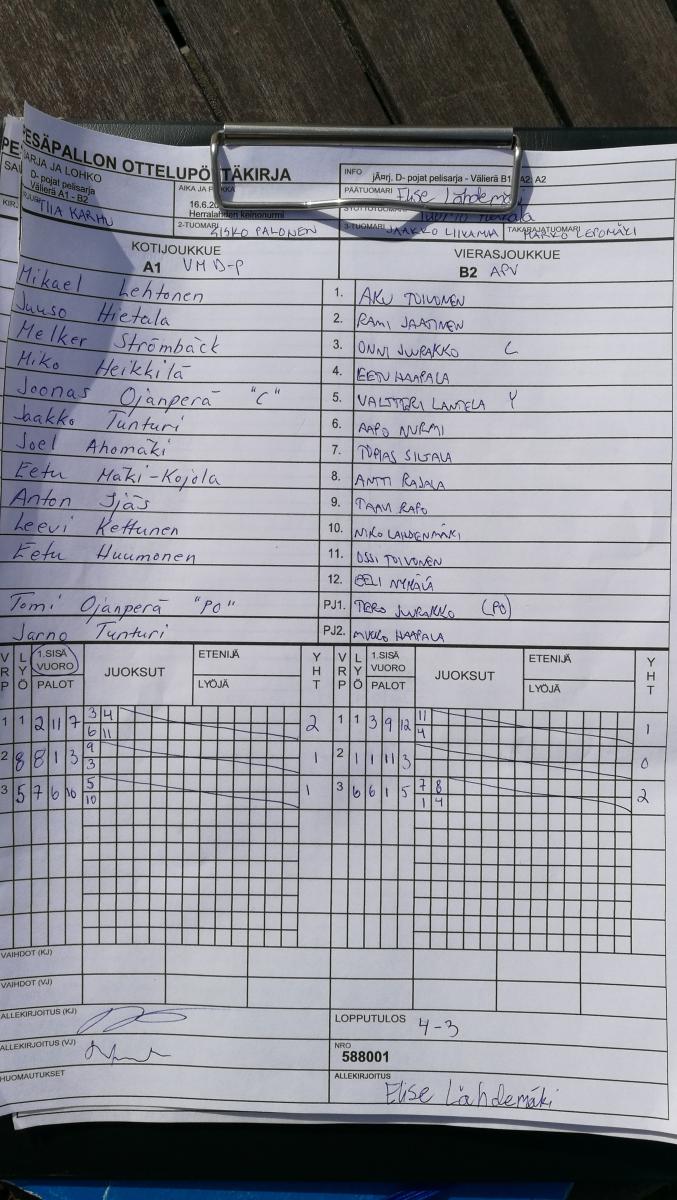 PESÄPALLON OTTELUPÖ TÄKIRJA
SARJA JA LOHKO
D- pojat pelisarja
Välierä A1 - B2
AIKA JA P KKA
16.6.20
Herralahden keinonurmi
INFO
jÄ¤rj. D- pojat pelisarja - Välierä B1 A2: A2
PÄÄTUOMARI Elise Lähdemä
TIIA KARHU
2-TUOMARI SISKO PALONEN
3-TUOMARI JAAKKO LIIKAMAA
TAKARAJATUOMARI MARKO LEPOMÄKI
KOTIJOUKKUE
A1 VM D-P
VIERASJOUKKUE
B2 APV
Mikael Lehtonen 1. AKU TOIVONEN
Juuso Hietala 2. RAMI JAATINEN
Melker Strömbäck 3. ONNI JUURAKKO L
Miko Heikkilä 4. EETU HAAPALA
Joonas Ojanperä "C" 5. VALTTERI LANTELA Y
Jaakko Tunturi 6. AAPO NURMI
Joel Ahomäki 7. TOPIAS SILTALA
Eetu Mäki-Kojola 8. ANTTI RAJALA
Anton Ijäs 9. TAAVI RAPO
Leevi Kettunen 10. NIKO LAHDENMÄKI
Eetu Huumonen 11. OSSI TOIVONEN
12. EELI
Tomi Ojanperä "PO" PJ1. TERO JUURAKKO (PO)
Jarno Tunturi PJ2. MIKKO HAAPALA
VRP LYÖ 1.SISÄ VUORO PALOT JUOKSUT ETENIJÄ LYÖJÄ YHT VRP LYÖ 1.SISÄ VUORO PALOT JUOKSUT ETENIJÄ LYÖJÄ YHT
1 1 2 11 7 3 4 2 1 1 3 9 12 11 1
6 11 4
2 8 8 1 3 9 1 2 1 1 11 3 0
3
3 5 7 6 10 5 1 3 6 6 1 5 7 8 2
10 1 4
VAIHDOT (KJ)
VAIHDOT (VJ)
ALLEKIRJOITUS (KJ)
LOPPUTULOS 4-3
ALLEKIRJOITUS (VJ)
NRO
588001
HUOMAUTUKSET
ALLEKIRJOITUS
Elise Lähdemäki